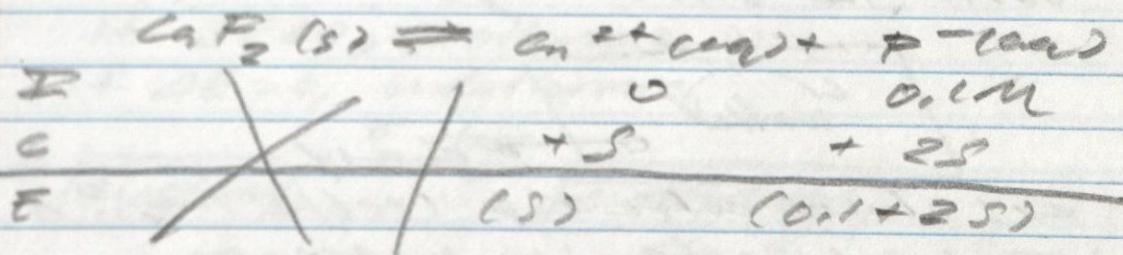 CaF₂ (s) ⇌ Ca²⁺ (aq) + F⁻ (aq)
I 0 0.1M
C + S + 2S
E (S) (0.1 + 2S)